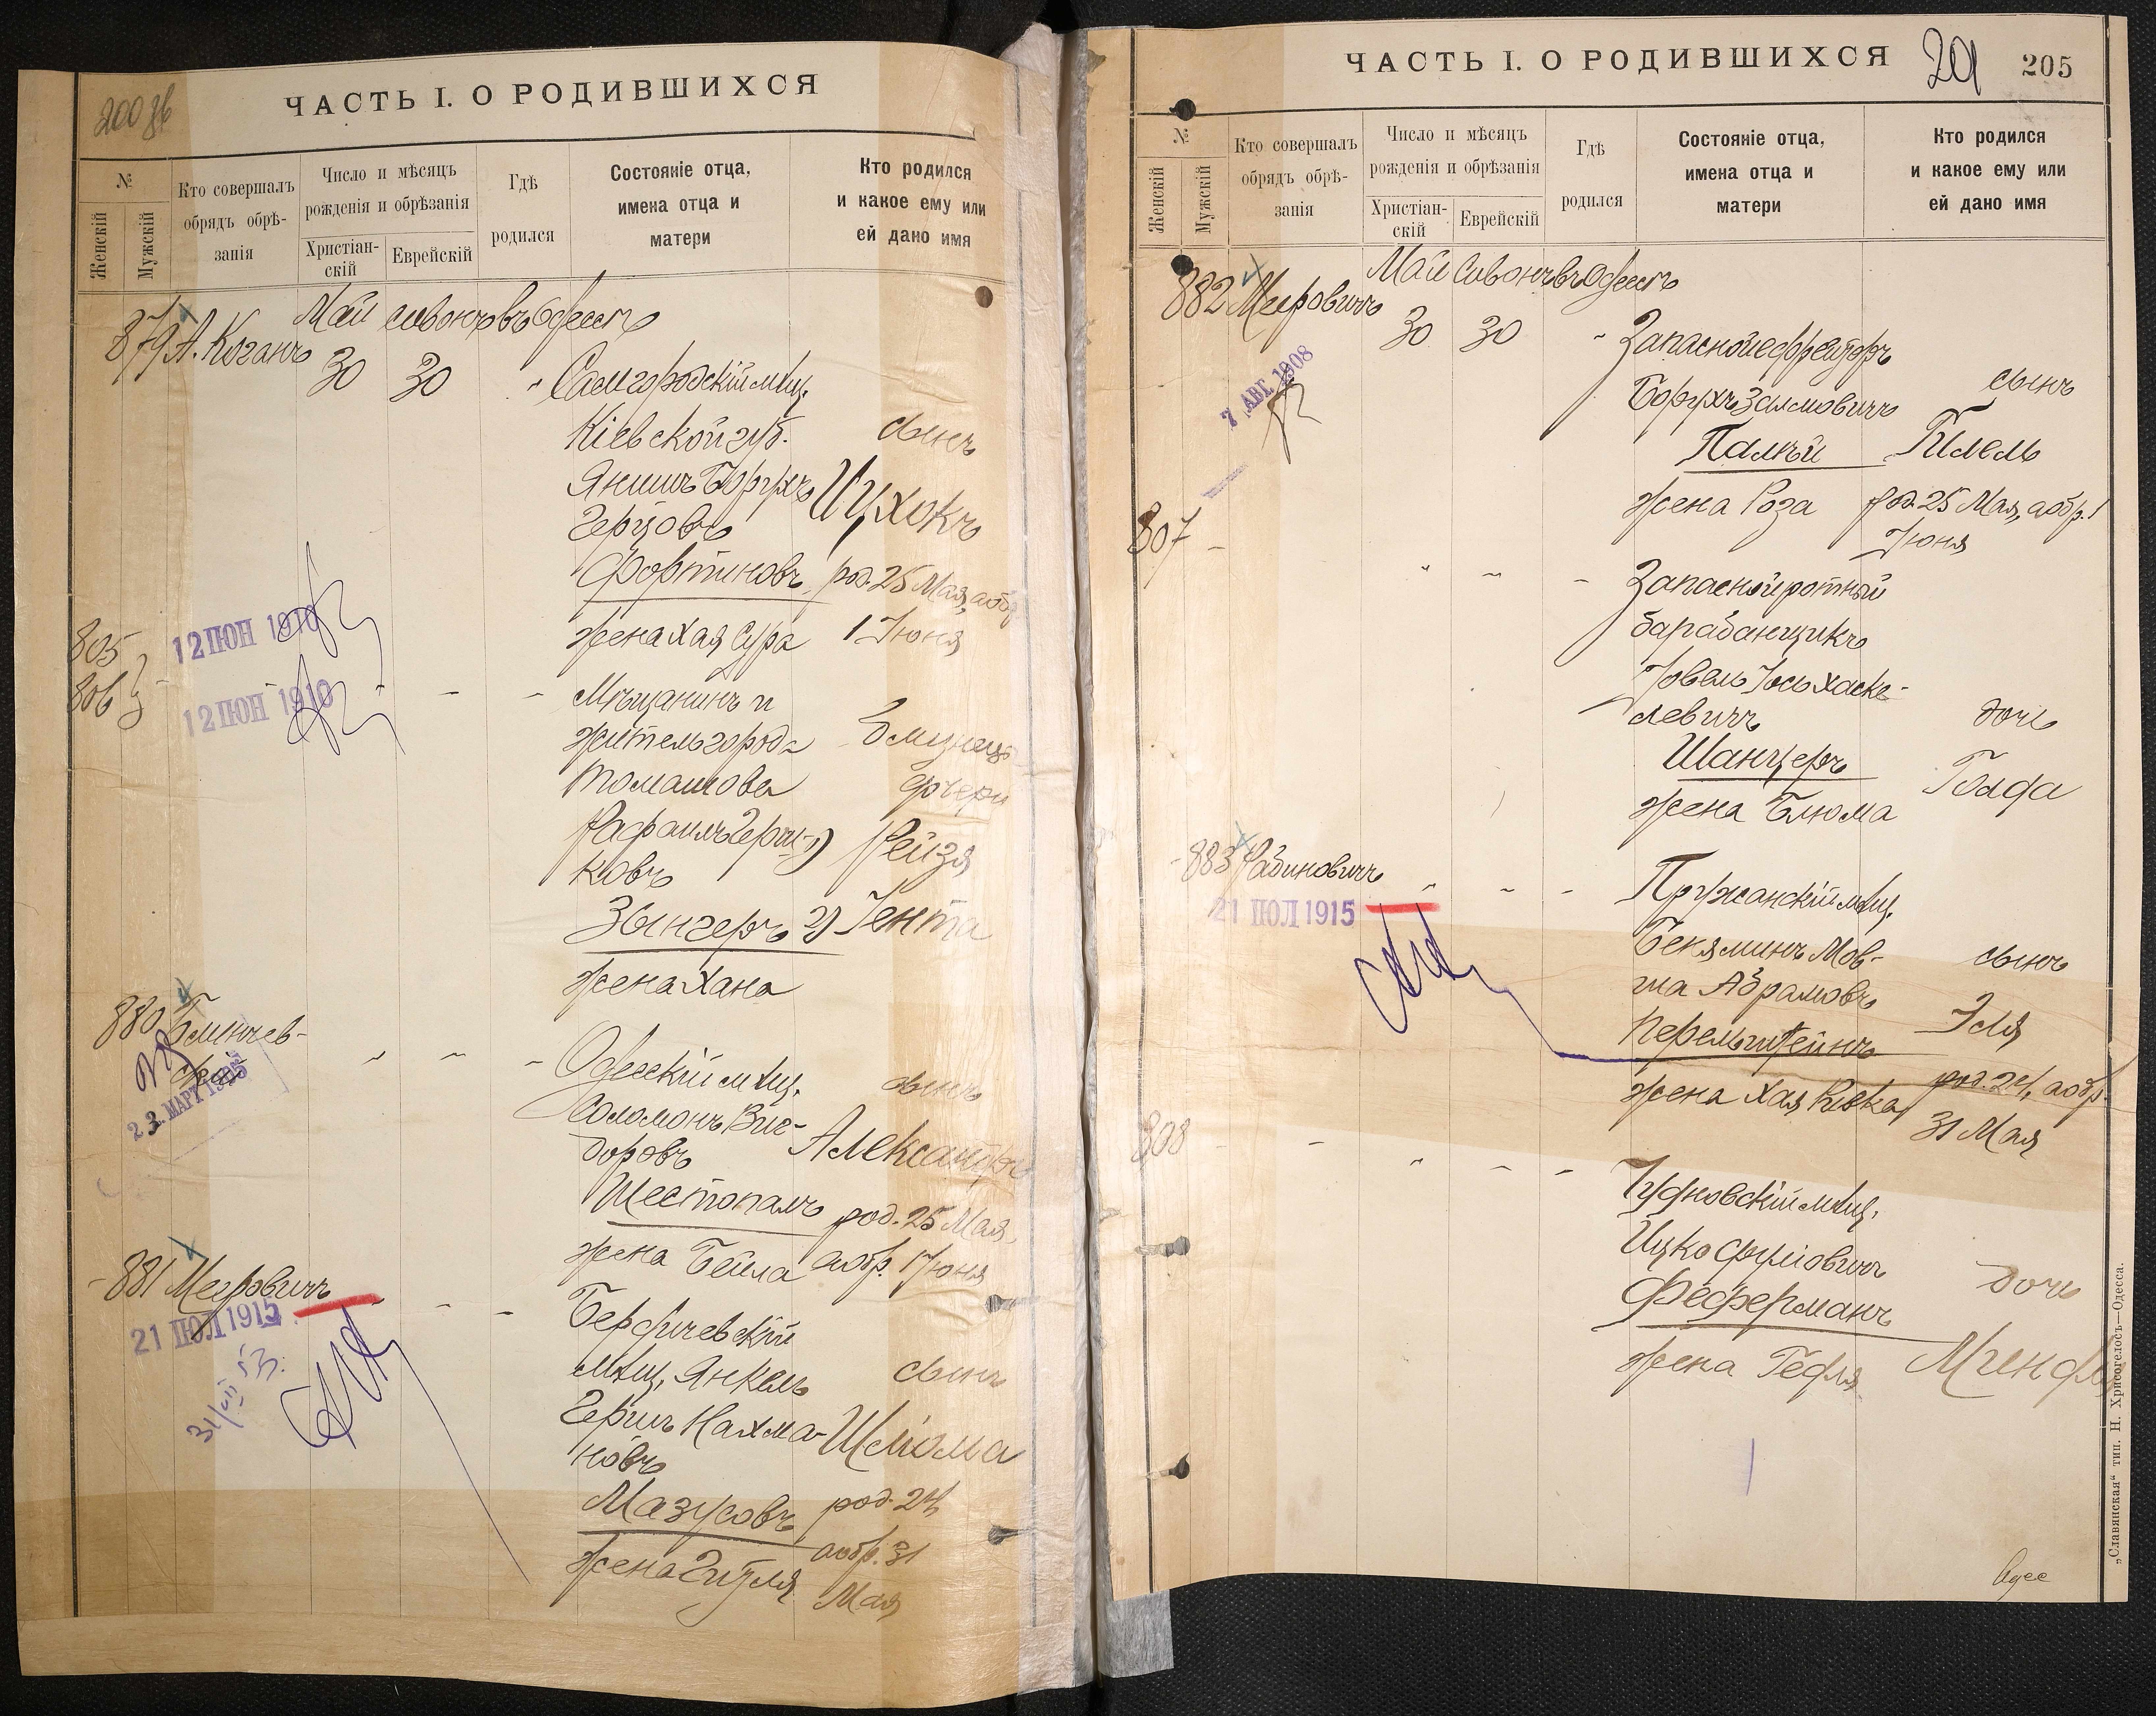 200 об
ЧАСТЬ I. О РОДИВШИХСЯ
№
Женскій
Мужскій
Кто совершалъ
обрядъ обрѣ-
занія
Число и мѣсяцъ
рожденія и обрѣзанія
Христіан-
скій
Еврейскій
Гдѣ
родился
Состояніе отца,
имена отца и
матери
Кто родился
и какое ему или
ей дано имя
Май сивонъ въ Одессѣ
879 А. Коганъ 30 30 " Самгородскій мѣщ.
Кіевской губ. сынъ
Янишъ Борухъ Ицхокъ
Герцовъ
Фортиновъ род. 25 Мая, а обр.
жена Хая Сура 1 Іюня
805
806
12 ІЮН 1910
12 ІЮН 1910
Мѣщанинъ и
житель города близнецы
Томашова дочери
Рафаилъ Герш- 1) Рейзя
ковъ
Зынгеръ 2) Іента
жена Хана
880 Блинчев-
ский
23 МАРТ 1925
Одесскій мѣщ. сынъ
Соломонъ Виг- Александръ
доровъ
Шестопалъ род. 25 Мая,
жена Бейла а обр. 1 Іюня
881 Меровичъ
21 ІЮЛ 1915
Бердичевскій
мѣщ. Янкель сынъ
Гершъ Нахма- Шлома
новъ
Мазусовъ род. 24,
а обр. 31
жена Гитля Мая
ЧАСТЬ I. О РОДИВШИХСЯ
201
205
№
Женскій
Мужскій
Кто совершалъ
обрядъ обрѣ-
занія
Число и мѣсяцъ
рожденія и обрѣзанія
Христіан-
скій
Еврейскій
Гдѣ
родился
Состояніе отца,
имена отца и
матери
Кто родился
и какое ему или
ей дано имя
Май Сивонъ въ Одессѣ
882 Меровичъ 30 30 " Запасной ефрейторъ
7 АВГ. 1908
Борухъ Залмовичъ сынъ
Палѣй Гилель
жена Роза род. 25 Мая, а обр. 1
Іюня
807 " " " Запасной ротный
барабанщикъ
Іовель Іось Хаске-
левичъ дочь
Шанцеръ Голда
жена Блюма
883 Рабиновичъ " " " Пружанскій мѣщ.
21 ІЮЛ 1915
Беняминъ Мов- сынъ
ша Абрамовъ
Перельштейнъ Эля
жена Хая Ривка род. 24, а обр.
31 Мая
808 " " " Чудновскій мѣщ.
Ицко Фулiовичъ
Федерманъ дочь
жена Гедля
Одес
„Славянская“ тип. Н. Хрисогелосъ—Одесса.